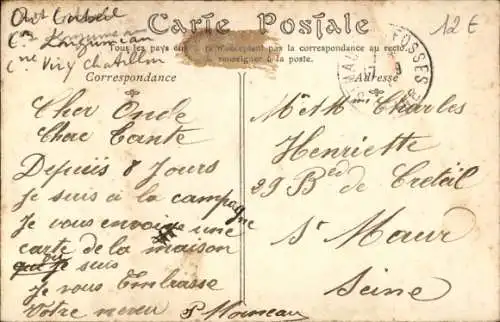 Art Corbeil
Con Longumeau
Cne Viry Chatillon
12 €
Carte Postale
Tous les pays n'acceptent pas la correspondance au recto
renseigner à la poste.
Correspondance
Adresse
FOSSES
Cher Oncle
Chere Tante
Depuis 8 Jours
Je suis à la campagne
Je vous envoie une
carte de la maison
ou je suis
Je vous Embrasse
Votre neveu P
Mr et Mme Charles
Henriette
29 Bd de Creteil
St Maur
Seine